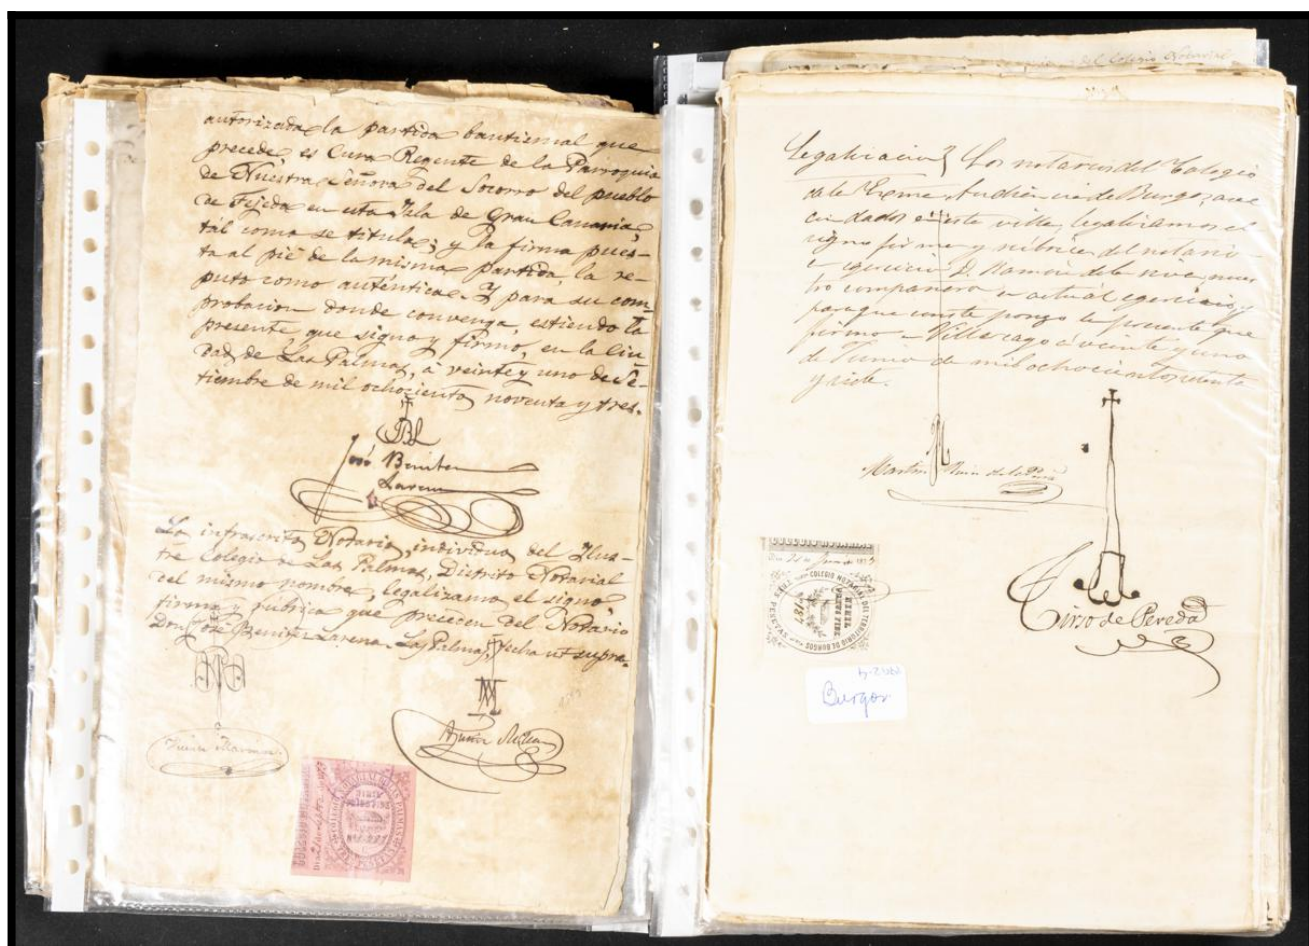 autorizada la partida bautismal que
precede es Cura Regente de la Parroquia
de Nuestra Señora del Socorro del pueblo
de Tejeda en esta Isla de Gran Canaria,
tál como se titula; y la firma pues-
ta al pié de la misma partida, la re-
puto como auténtica. Y para su com-
probacion donde convenga, estiendo la
presente que signo y firmo, en la Ciu-
dad de Las Palmas, á veinte y uno de Se-
tiembre de mil ochocientos noventa y tres.
José Benitez
Larena
Los infrascritos Notarios, individuos del Ilus-
tre Colegio de Las Palmas, Distrito Notarial
del mismo nombre, legalizamos el signo,
firma y rúbrica que preceden del Notario
Don José Benitez Larena. Las Palmas, fecha ut supra.
Legalizacion} Los notarios del Colegio
de la Audiencia de Burgos, ave
cindados en esta villa, legalizamos el
signo firma y rúbrica del notario
D. Ramón de la nues
tro compañero en actual egercicio, y
para que conste pongo la presente que
firmo en á veinte y uno
de Junio de mil ochocientos
y siete.
Martin Ruiz de la
Tirso de Pereda
COLEGIO NOTARIAL
COLEGIO NOTARIAL DEL TERRITORIO DE BURGOS
NIHIL PRIUS FIDE
TRES PESETAS
Burgos